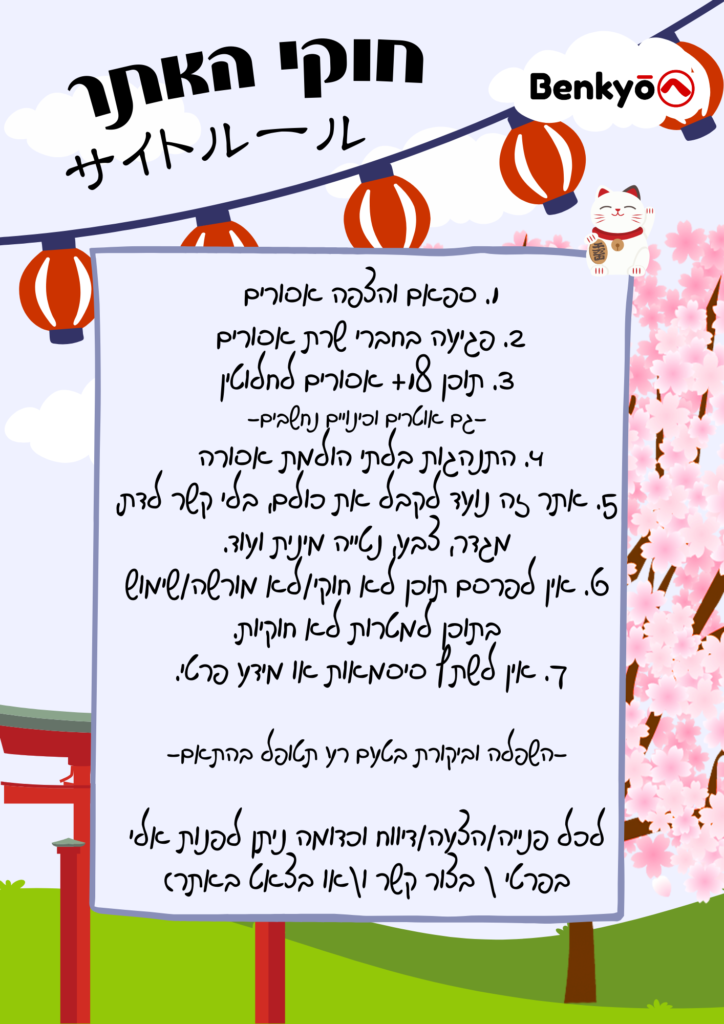 חוקי האתר
サイトルール
Benkyō
1. ספאם והצפה אסורים
2. פגיעה בחברי שרת אסורים
3. תוכן 18+ אסורים לחלוטין
-גם אווטרים וכינויים נחשבים-
4. התנהגות בלתי הולמת אסורה
5. אתר זה נועד לקבל את כולם, בלי קשר לדת,
מגדר, צבע, נטייה מינית ועוד.
6. אין לפרסם תוכן לא חוקי/לא מורשה/שימוש
בתוכן למטרות לא חוקיות.
7. אין לשתף סיסמאות או מידע פרטי.
-השפלה וביקורת בטעם רע תטופל בהתאם-
לכל פנייה/הצעה/דיווח וכדומה ניתן לפנות אלי
בפרטי \ בצור קשר ו\או בצאט באתר>